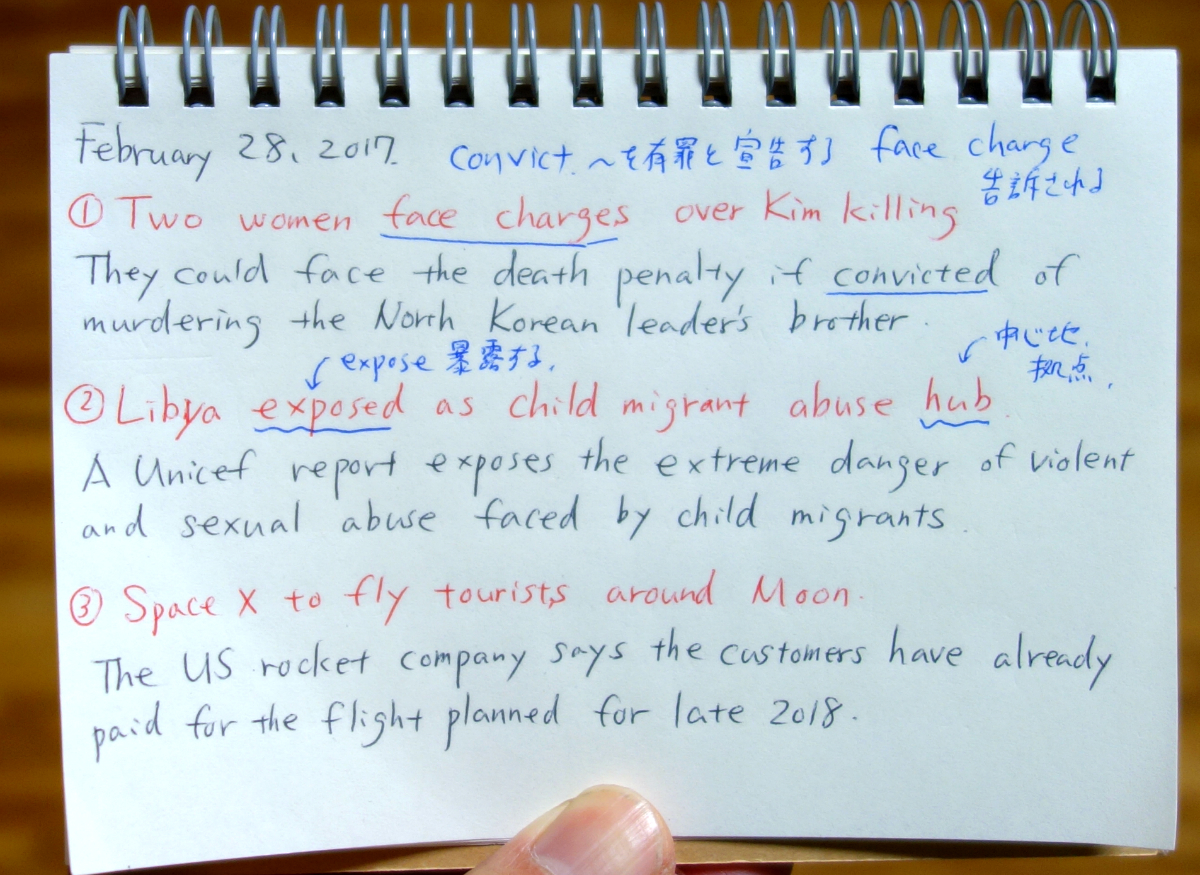 February 28, 2017. convict. ～を有罪と宣告する face charge
告訴される
① Two women face charges over Kim killing
They could face the death penalty if convicted of
murdering the North Korean leader's brother.
expose 暴露する.
中心地.
拠点.
② Libya exposed as child migrant abuse hub.
A Unicef report exposes the extreme danger of violent
and sexual abuse faced by child migrants.
③ Space X to fly tourists around Moon.
The US rocket company says the customers have already
paid for the flight planned for late 2018.